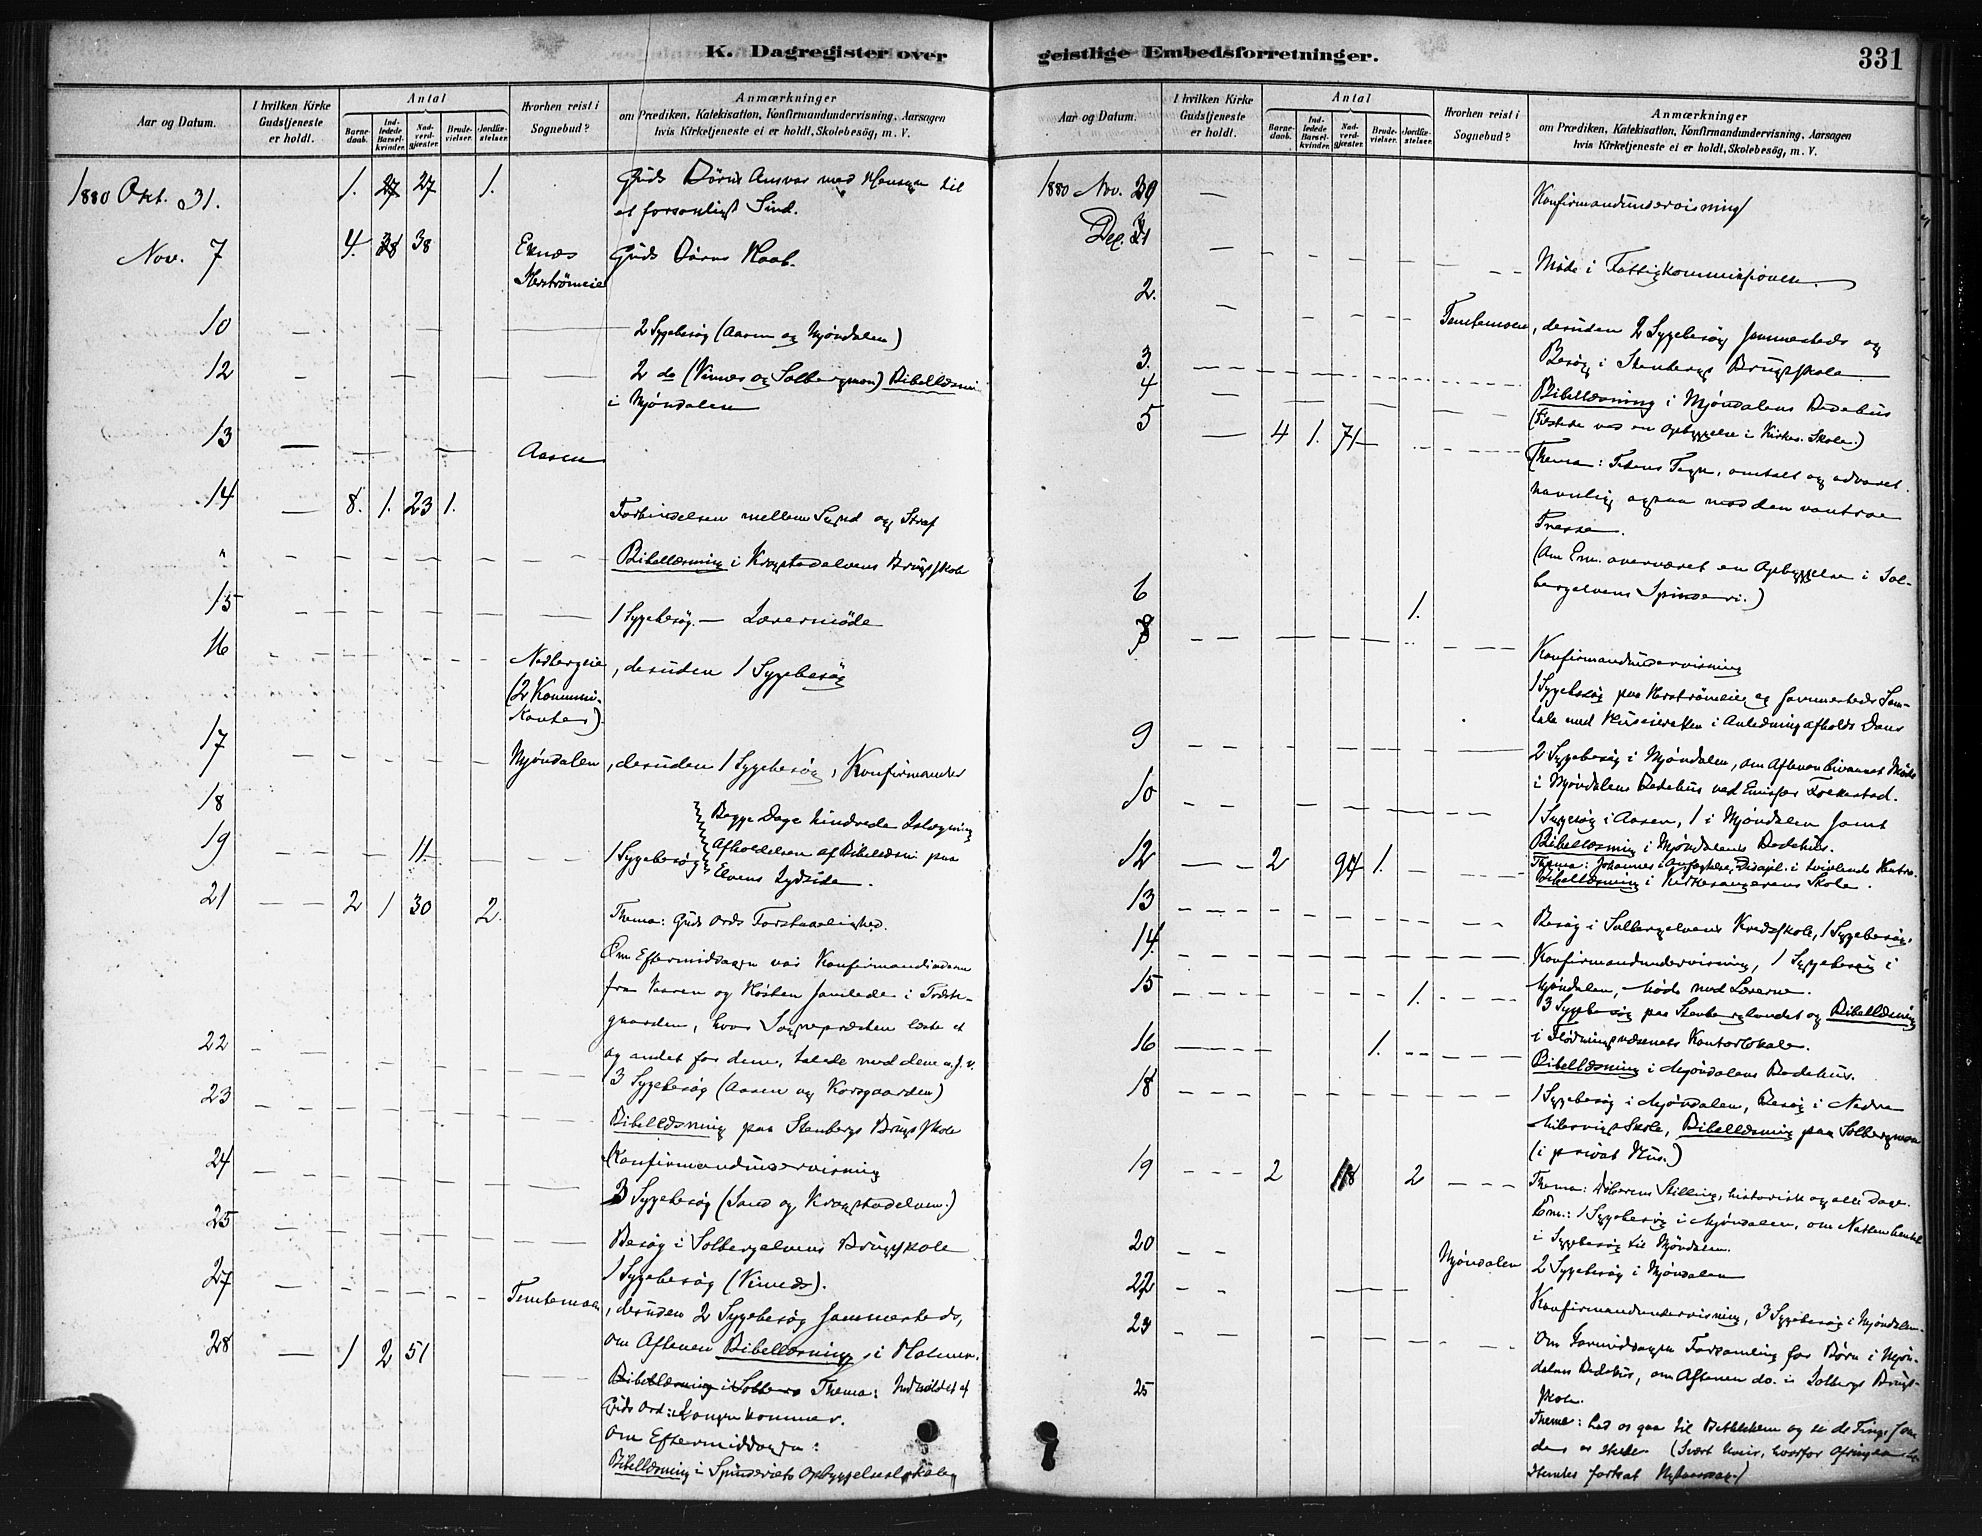 K. Dagregister over
Aar og Datum.
I hvilken Kirke Gudstjeneste er holdt.
Antal
Barnedaab.
Indledede Barselkvinder.
Nadverdgjæster.
Brudevielser.
Jordfæstelser.
Hvorhen reist i Sognebud?
Anmærkninger
om Prædiken, Katekisation, Konfirmandundervisning, Aarsagen
hvis Kirketjeneste ei er holdt, Skolebesøg, m. V.
1880 Okt. 31. 1. 27 27 1. Guds Børns Ansvar med Hensyn til
et forsonligt Sind.
Nov. 7 4. 38 38 Eknæs Guds Børns Haab.
Herstrømeie
10 2 Sygebesøg (Aasen og Mjøndalen)
12 2 do (Vinnes og Solbergmoen) Bibellæsni
i Mjøndalen
13 Aasen
14 8. 1. 23 1. Forbindelsen mellem Synd og Straf
" Bibellæsning i Krogstadelvens Brugsskole
15 1 Sygebesøg. — Lærermøde
16 Nedbergeie, desuden 1 Sygebesøg
(2 Kommunikanter)
17 Mjøndalen, desuden 1 Sygebesøg, Konfirmander
18 Begge Dage hindrede Islægning
19 11. 1 Sygebesøg Afholdelsen af Bibellæsn paa
Elvens Sydside.
21 2 1 30 2. Thema: Guds Ords Forstaaelighed.
Om Eftermiddagen var Konfirmandinderne
fra Vaaren og Høsten samlede i Præste-
gaarden, hvor Sognepræsten læste et
og andet for dem, talede med dem o.s.v.
22 3 Sygebesøg (Aasen og Korsgaarden)
23 Bibellæsning paa Stenbergs Brugsskole
24 Konfirmandundervisning
3 Sygebesøg (Sand og Krogstadelven.)
25 Besøg i Solbergelvens Brugsskole
1 Sygebesøg (Vinnes).
27 Temtemoen, desuden 2 Sygebesøg sammesteds,
om Aftenen Bibellæsning i Holmen.
28 1 2 51 Bibellæsning i Solberg Thema: Indholdet af
Guds Ord: Kongen kommer.
Om Eftermiddagen:
Bibellæsning i Spinderiets Opbyggelseslokale
geistlige Embedsforretninger.
331
Aar og Datum.
I hvilken Kirke Gudstjeneste er holdt.
Antal
Barnedaab.
Indledede Barselkvinder.
Nadverdgjæster.
Brudevielser.
Jordfæstelser.
Hvorhen reist i Sognebud?
Anmærkninger
om Prædiken, Katekisation, Konfirmandundervisning, Aarsagen
hvis Kirketjeneste ei er holdt, Skolebesøg, m. V.
1880 Nov. 30 Konfirmandundervisning
Dec. 1 Møde i Fattigkommissionen
2. Temtemoen, desuden 2 Sygebesøg sammesteds og
Besøg i Stenbergs Brugsskole
3. Bibellæsning i Mjøndalens Bedehus
4 (Tilstede ved en Opbyggelse i Kirkes. Skole.)
5 4 1. 71 Thema: Tidens Tegn, omtalt og advaret
navnlig ogsaa mod den vantroe
Presse.
(Om Em. overværet en Opbyggelse i Sol-
bergelvens Spinderi.)
6 1.
8 Konfirmandundervisning
1 Sygebesøg paa Herstrømeie og sammesteds Sam-
tale med Huseieren i Anledning afholdt Dans
9 2 Sygebesøg i Mjøndalen, om Aftenen bivaanet Møde
i Mjøndalens Bedehus ved Emissær
10 1 Sygebesøg i Aasen, 1 i Mjøndalen samt
Bibellæsning i Mjøndalens Bedehus.
12 2 94 1. Thema: Johannes i Anfægtelse,
Bibellæsning i Kirkesangerens Skole.
13 Besøg i Solbergelvens Kredsskole, 1 Sygebesøg.
14. Konfirmandundervisning, 1 Sygebesøg i
Mjøndalen, Møde med Lærerne.
15 1. 3 Sygebesøg paa Stenberglandet og Bibellæsning
i Flødningsvæsenets Kontorlokale.
16 1. Bibellæsning i Mjøndalens Bedehus.
18 1 Sygebesøg i Mjøndalen, Besøg i Nedre
Milesvigs Skole, Bibellæsning paa Solbergmoen
(i privat Hus.)
19 2 118 2 Thema: Døberens Stilling, historisk og alle Dage.
Em.: 1 Sygebesøg i Mjøndalen, om Natten hentet
i Sygebesøg til Mjøndalen.
20 Mjøndalen 2 Sygebesøg i Mjøndalen
22 Konfirmandundervisning, 3 Sygebesøg i Mjøndalen.
23 Om Formiddagen Forsamling for Børn i Mjøn-
dalens Bedehus, om Aftenen do. i Solbergs Brugs-
skole.
25 Thema: Lad os gaa til Bethlehem og se de Ting som
der er skede (Svært Veir, hvorfor
fortsat